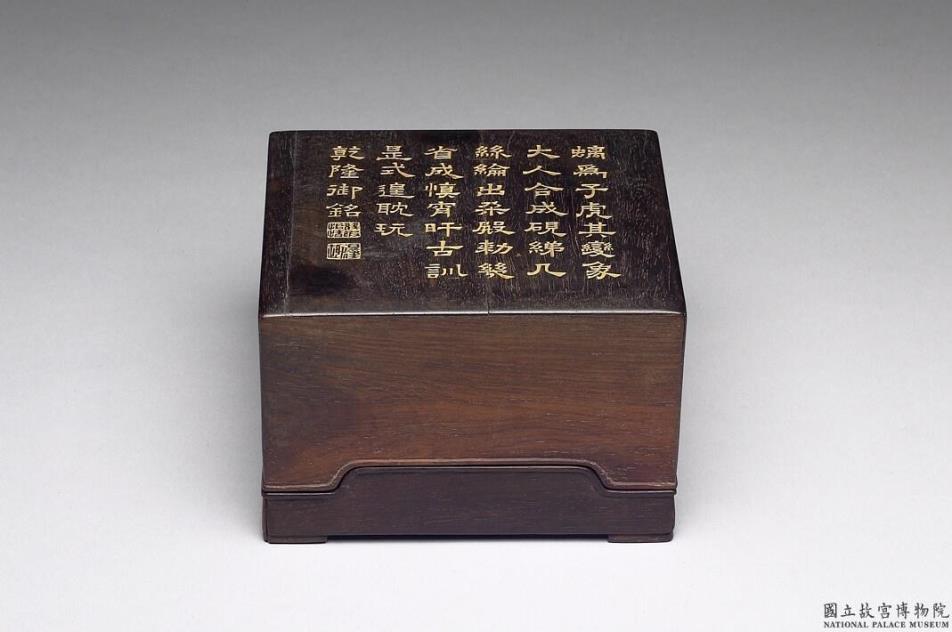 螭爲子虎其變象
大人合成硯綈几
絲綸出朵殿勅幾
省成慎宵旰古訓
是式遑耽玩
乾隆御銘
國立故宮博物院
NATIONAL PALACE MUSEUM